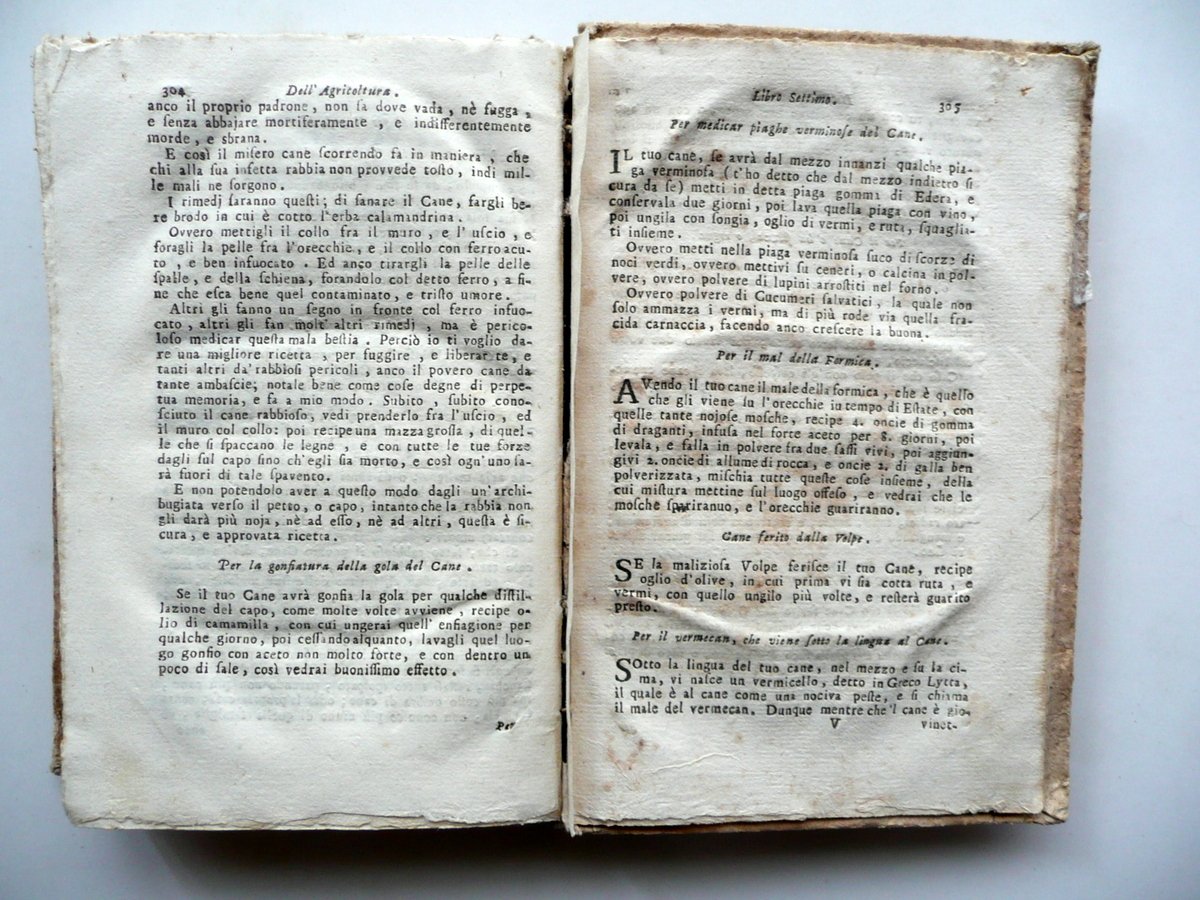 304 Dell' Agricoltura.
anco il proprio padrone, non ſa dove vada, nè fugga,
e ſenza abbajare mortiferamente, e indifferentemente
morde, e sbrana.
E così il miſero cane ſcorrendo fa in maniera, che
chi alla sua infetta rabbia non provvede toſto, indi mil-
le mali ne ſorgono.
I rimedj ſaranno queſti; di ſanare il Cane, fargli be-
re brodo in cui è cotto l'erba calamandrina.
Ovvero mettigli il collo fra il muro, e l'uſcio, e
foragli la pelle fra l'orecchie, e il collo con ferro acu-
to, e ben infuocato. Ed anco tirargli la pelle delle
ſpalle, e della ſchiena, forandolo col detto ferro, a fi-
ne che eſca bene quel contaminato, e triſto umore.
Altri gli fanno un ſegno in fronte col ferro infuo-
cato, altri gli fan molt' altri rimedj, ma è perico-
loſo medicar queſta mala beſtia. Perciò io ti voglio da-
re una migliore ricetta, per fuggire, e liberar te, e
tanti altri da' rabbioſi pericoli, anco il povero cane da
tante ambaſcie; notale bene come coſe degne di perpe-
tua memoria, e fa a mio modo. Subito, ſubito cono-
ſciuto il cane rabbioſo, vedi prenderlo fra l'uſcio, ed
il muro col collo: poi recipe una mazza groſſa, di quel-
le che ſi ſpaccano le legne, e con tutte le tue forze
dagli ſul capo ſino ch'egli ſia morto, e così ogn'uno ſa-
rà fuori di tale ſpavento.
E non potendolo aver a queſto modo dagli un'archi-
bugiata verſo il petto, o capo, intanto che la rabbia non
gli darà più noja, nè ad eſſo, nè ad altri, queſta è ſi-
cura, e approvata ricetta.
Per la gonfiatura della gola del Cane.
Se il tuo Cane avrà gonfia la gola per qualche diſtil-
lazione del capo, come molte volte avviene, recipe o-
lio di camamilla, con cui ungerai quell' enfiagione per
qualche giorno, poi ceſſando alquanto, lavagli quel luo-
go gonfio con aceto non molto forte, e con dentro un
poco di ſale, così vedrai buoniſſimo effetto.
Per
Libro Settimo. 305
Per medicar piaghe verminoſe del Cane.
IL tuo cane, ſe avrà dal mezzo innanzi qualche pia-
ga verminoſa (t'ho detto che dal mezzo indietro ſi
cura da ſe) metti in detta piaga gomma di Edera, e
conſervala due giorni, poi lava quella piaga con vino,
poi ungila con ſongia, oglio di vermi, e ruta, ſquaglia-
ti inſieme.
Ovvero metti nella piaga verminoſa ſuco di ſcorze di
noci verdi, ovvero mettivi ſu ceneri, o calcina in pol-
vere, ovvero polvere di lupini arroſtiti nel forno.
Ovvero polvere di Cucumeri ſalvatici, la quale non
ſolo ammazza i vermi, ma di più rode via quella fra-
cida carnaccia, facendo anco creſcere la buona.
Per il mal della Formica.
AVendo il tuo cane il male della formica, che è quello
che gli viene ſu l'orecchie in tempo di Eſtate, con
quelle tante nojoſe moſche, recipe 4. oncie di gomma
di draganti, infuſa nel forte aceto per 8. giorni, poi
levala, e falla in polvere fra due ſaſſi vivi, poi aggiun-
givi 2. oncie di allume di rocca, e oncie 2. di galla ben
polverizzata, miſchia tutte queſte coſe inſieme, della
cui miſtura mettine ſul luogo offeſo, e vedrai che le
moſche ſpariranuo, e l'orecchie guariranno.
Cane ferito dalla Volpe.
SE la malizioſa Volpe feriſce il tuo Cane, recipe
oglio d'olive, in cui prima vi ſia cotta ruta, e
vermi, con quello ungilo più volte, e reſterà guarito
preſto.
Per il vermecan, che viene ſotto la lingua al Cane.
SOtto la lingua del tuo cane, nel mezzo e ſu la ci-
ma, vi naſce un vermicello, detto in Greco Lytta,
il quale è al cane come una nociva peſte, e ſi chiama
il male del vermecan. Dunque mentre che 'l cane è gio-
V vinet-